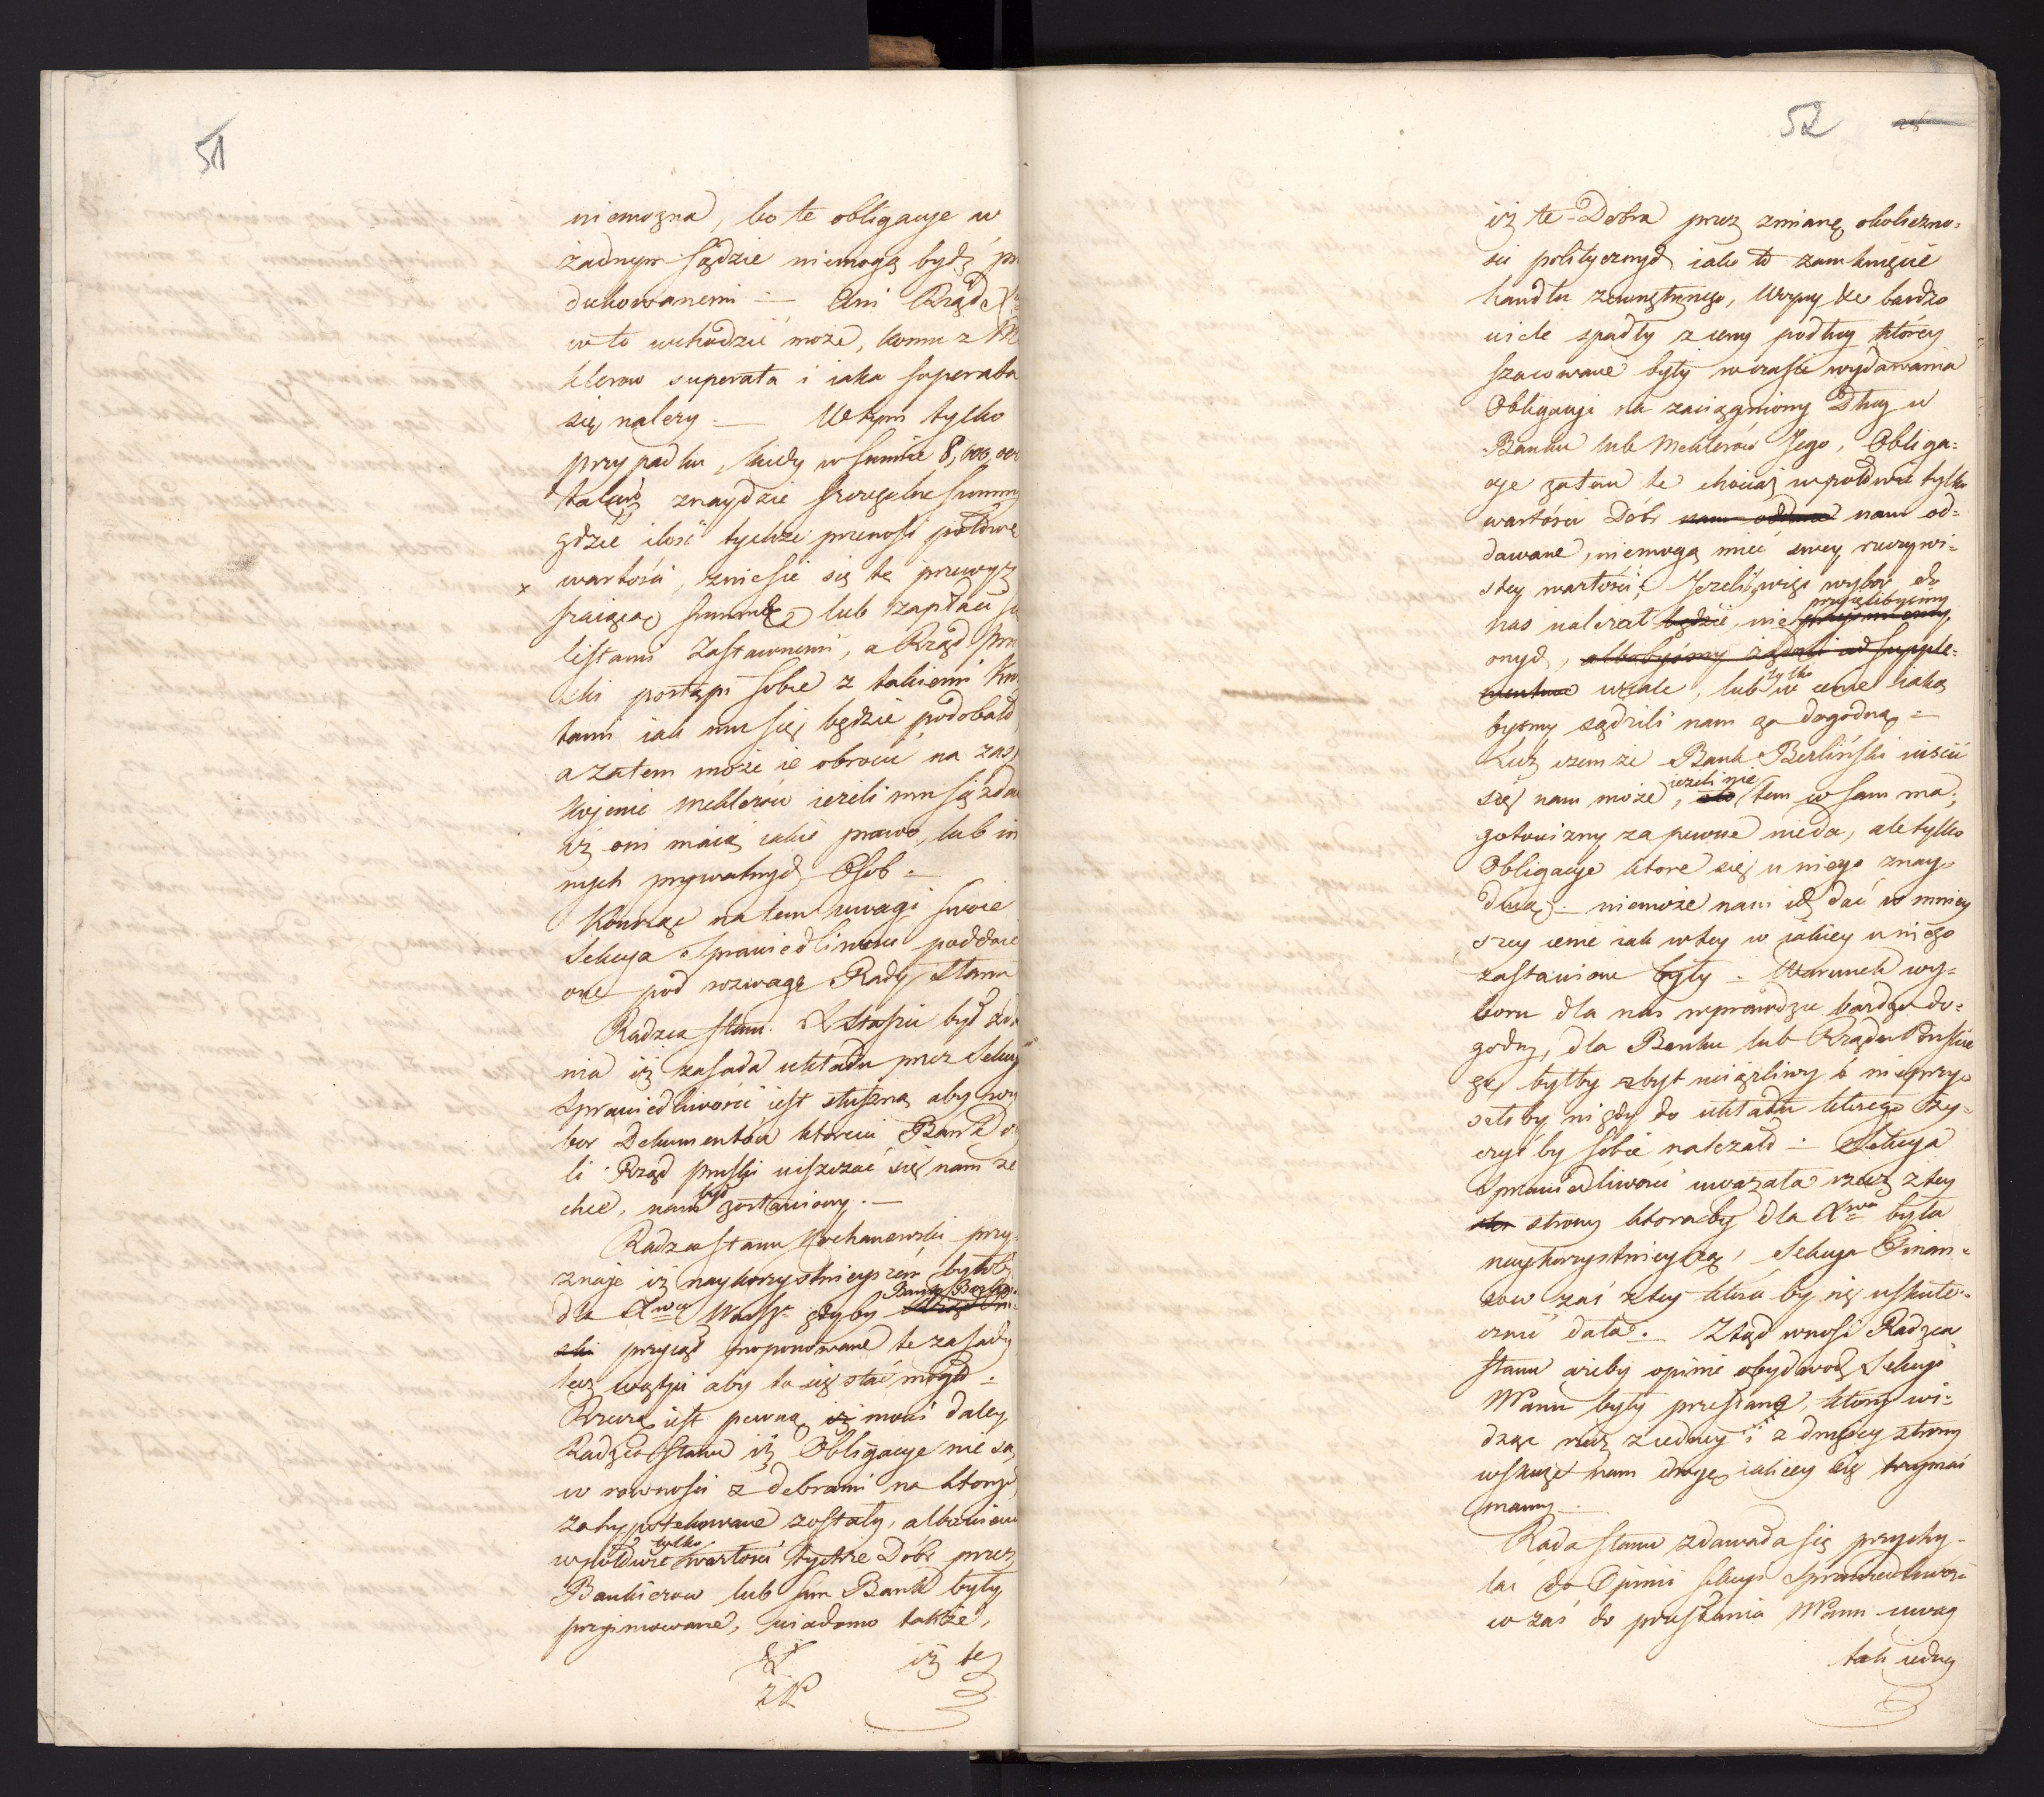 51
niemozna, bo te obligacye w
żadnym sądzie niemogą bydź pro
dukowanemi — Ani Rząd
w to wchodzić może, komu z M
klerow superata i iaka superata
się należy — W tym tylko
przypadku, kiedy w summie 8,000,000
talarow znaydzie szczegulne summy
gdzie ilość tychże przenosi połowę
x wartości, zniesie się te przewyż
szaiące summę lub zapłaci
listami Zastawnemi, a Rząd Pru
ski postąpi sobie z takiemi Kwo
tami iak mu się będzie podobało
a zatem może ie obrocić na zasp
kojenie Meklerów ieżeli mu się zda
iż oni maią iakie prawo, lub in
nych prywatnych Osob.
Kończąc na tem uwagi swoie
Sekcya Sprawiedliwości poddaie
one pod rozwagę Rady Stanu
Radzca Stanu Staszic był zda
nia iż zasada układu przez Sekcyę
Sprawiedliwości iest słuszną aby wy
bor Dokumentów ktoremi Bank
li Rząd pruski uiszczać się nam ze
chce, nam był zostawiony. —
Radzca Stanu Kochanowski przy
znaje iż naykorzystnieyszem byłoby
dla Xwa Warsz. gdyby Bank Berliń
ski przyiął proponowane te zasady
lecz wątpi aby to się stać mogło.
Rzeczą iest pewną, iż mowi daley
Radzca Stanu iż Obligacye nie są
w rowności z dobrami na ktorych
zahypotekowane zostały, albowiem
w połowie tylko wartości tychże Dóbr przez
Bankierow lub sam Bank były
przyimowane, wiadomo także,
iż te
52
iż te Dobra przez zmianę okoliczno=
ści politycznych iako to zamknięcie
handlu zewnętrznego, Woyny &c bardzo
wiele spadły z ceny podług którey
szacowane były w czasie wydawania
Obligacyi na zaciągniony Dług w
Banku lub Meklerów Jego, Obliga=
cye zatem te chociaż w połowie tylko
wartości Dóbr nam od=
dawane, niemogą mieć swey rzeczywi=
stey wartości; Jeżeliby więc wybor do
nas należał będzie, nie przyięlibyśmy
onych, albobyśmy żądali ad supple=
mentum wcale, lub tylko w cenie iaką
byśmy sądzili nam za dogodną =
Lecz czemże Bank Berliński uiścić
się nam może, ieżeli nie tem co sam ma;
gotowizny zapewne nieda, ale tylko
Obligacye ktore się u niego znay=
duią — niemoże nam ich dać w mniey
szey cenie iak w tey w iakiey u niego
zastawione były — Warunek wy=
boru dla nas wprawdzie bardzo do=
godny, dla Banku lub Rządu Pruskie
go byłby zbyt uciążliwy i nieprzy=
szłoby nigdy do układu ktorego ży=
czyć by sobie należało — Sekcya
Sprawiedliwości uważała rzecz z tey
strony ktoraby dla Xwa była
naykorzystnieyszą, Sekcya Finan=
sow zaś z tey ktora by się uskute=
cznić dała. Ztąd wnosi Radzca
Stanu ażeby opinie obydwoch Sekcyi
JWPanu były przesłane, ktory wi=
dząc rzecz z iedney i z drugiey strony
wskaże nam drogę iakiey się trzymać
mamy.
Rada Stanu zdawała się przychy=
lać do Opinii Sekcyi Sprawiedliwości
co zaś do przesłania JWPanu uwag
tak iedney